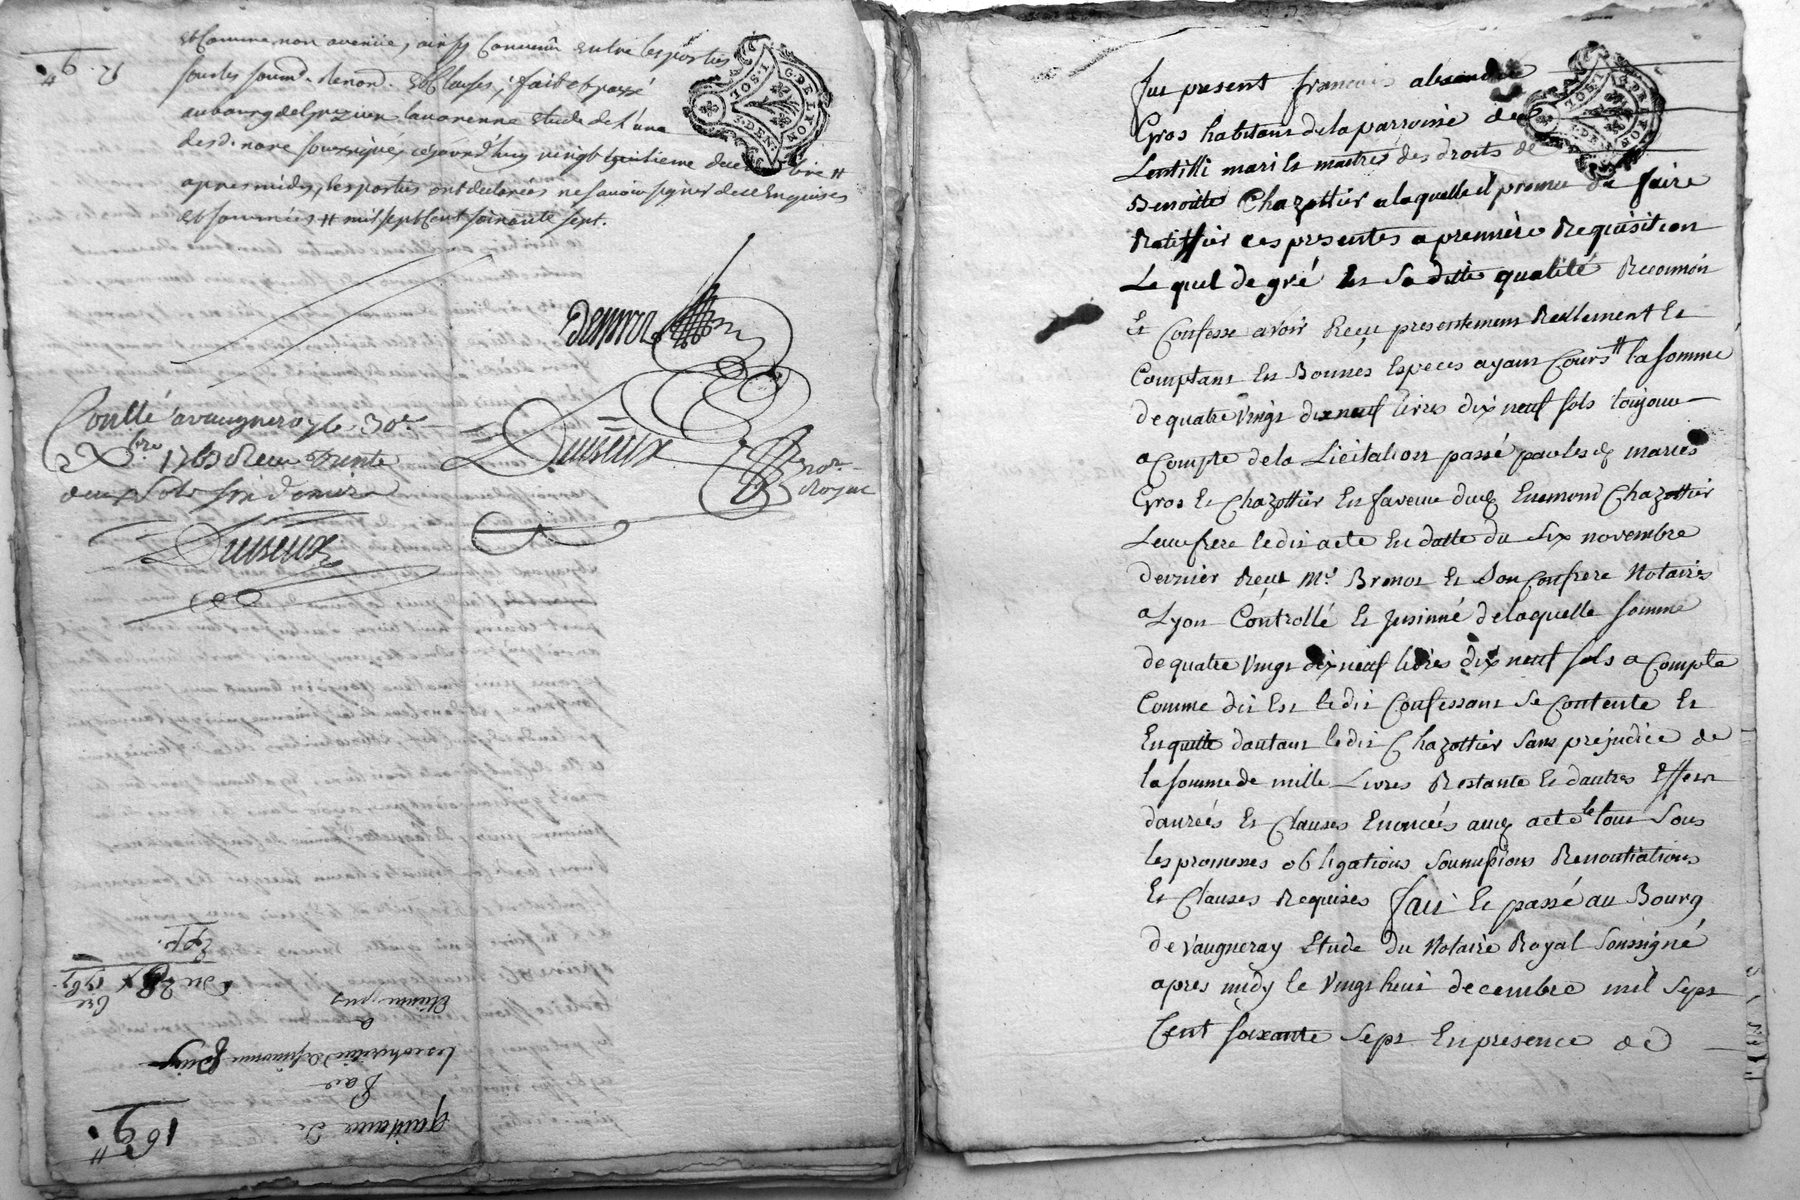 et comme non avenüe, ainsy convenû entre les parties
sous les soumis. renon. et clauses, fait et passé
au bourg de grezieu lavarenne etude de l'un
desd. nore soussignés cejourd'huy vingt huitieme decembre #
apres midy, les parties ont declarées ne savoir signer de ce enquises
et sommées # mil sept cent soixante sept.
G. DE LYON
1. SOL
3. DEN.
Dutreux
nore
royal
Conllé a vaugneray le 30e
Xbre 1767 Reçu trente
deux sols six deniers
Dutreux
169
quittance de
Les coheritiers
a
Etienne
du 28 Xbre 1767
Exp.
Fut present francois alexandre
Gros habitant de la parroisse de
Lentilli mari et maitre des droits de
Benoitte Chazottier a laquelle il promet de faire
Ratiffier ces presentes a première Requisition
Lequel de gré En Sa ditte qualité Reconnoit
Et Confesse avoir Reçu presentement Reellement et
Comptant En Bonnes Especes ayant Cours # la somme
de quatre Vingt dix neuf livres dix neuf sols
a Compte de la Licitation passé par lesd mariés
Gros et Chazottier En faveur dud Enemond Chazottier
Leur frere ledit acte En datte du Six novembre
dernier Reçu Me Brenot et Son Confrere Notaires
a Lyon Controllé et Insinué de laquelle somme
de quatre Vingt dix neuf livres dix neuf sols a Compte
Comme dit Est ledit Confessant Se Contente et
En quitte dautant ledit Chazottier Sans prejudice de
la somme de mille Livres Restante et dautres Effets
danrées et Clauses Enoncées aud acte le tout Sous
les promesses obligations Soumissions Renontiations
et Clauses Requises fait et passé au Bourg
de Vaugneray Etude du Notaire Royal Soussigné
apres midy le Vingt huit decembre mil Sept
Cent Soixante Sept En presence de
G. DE LYON
1. SOL
3. DEN.